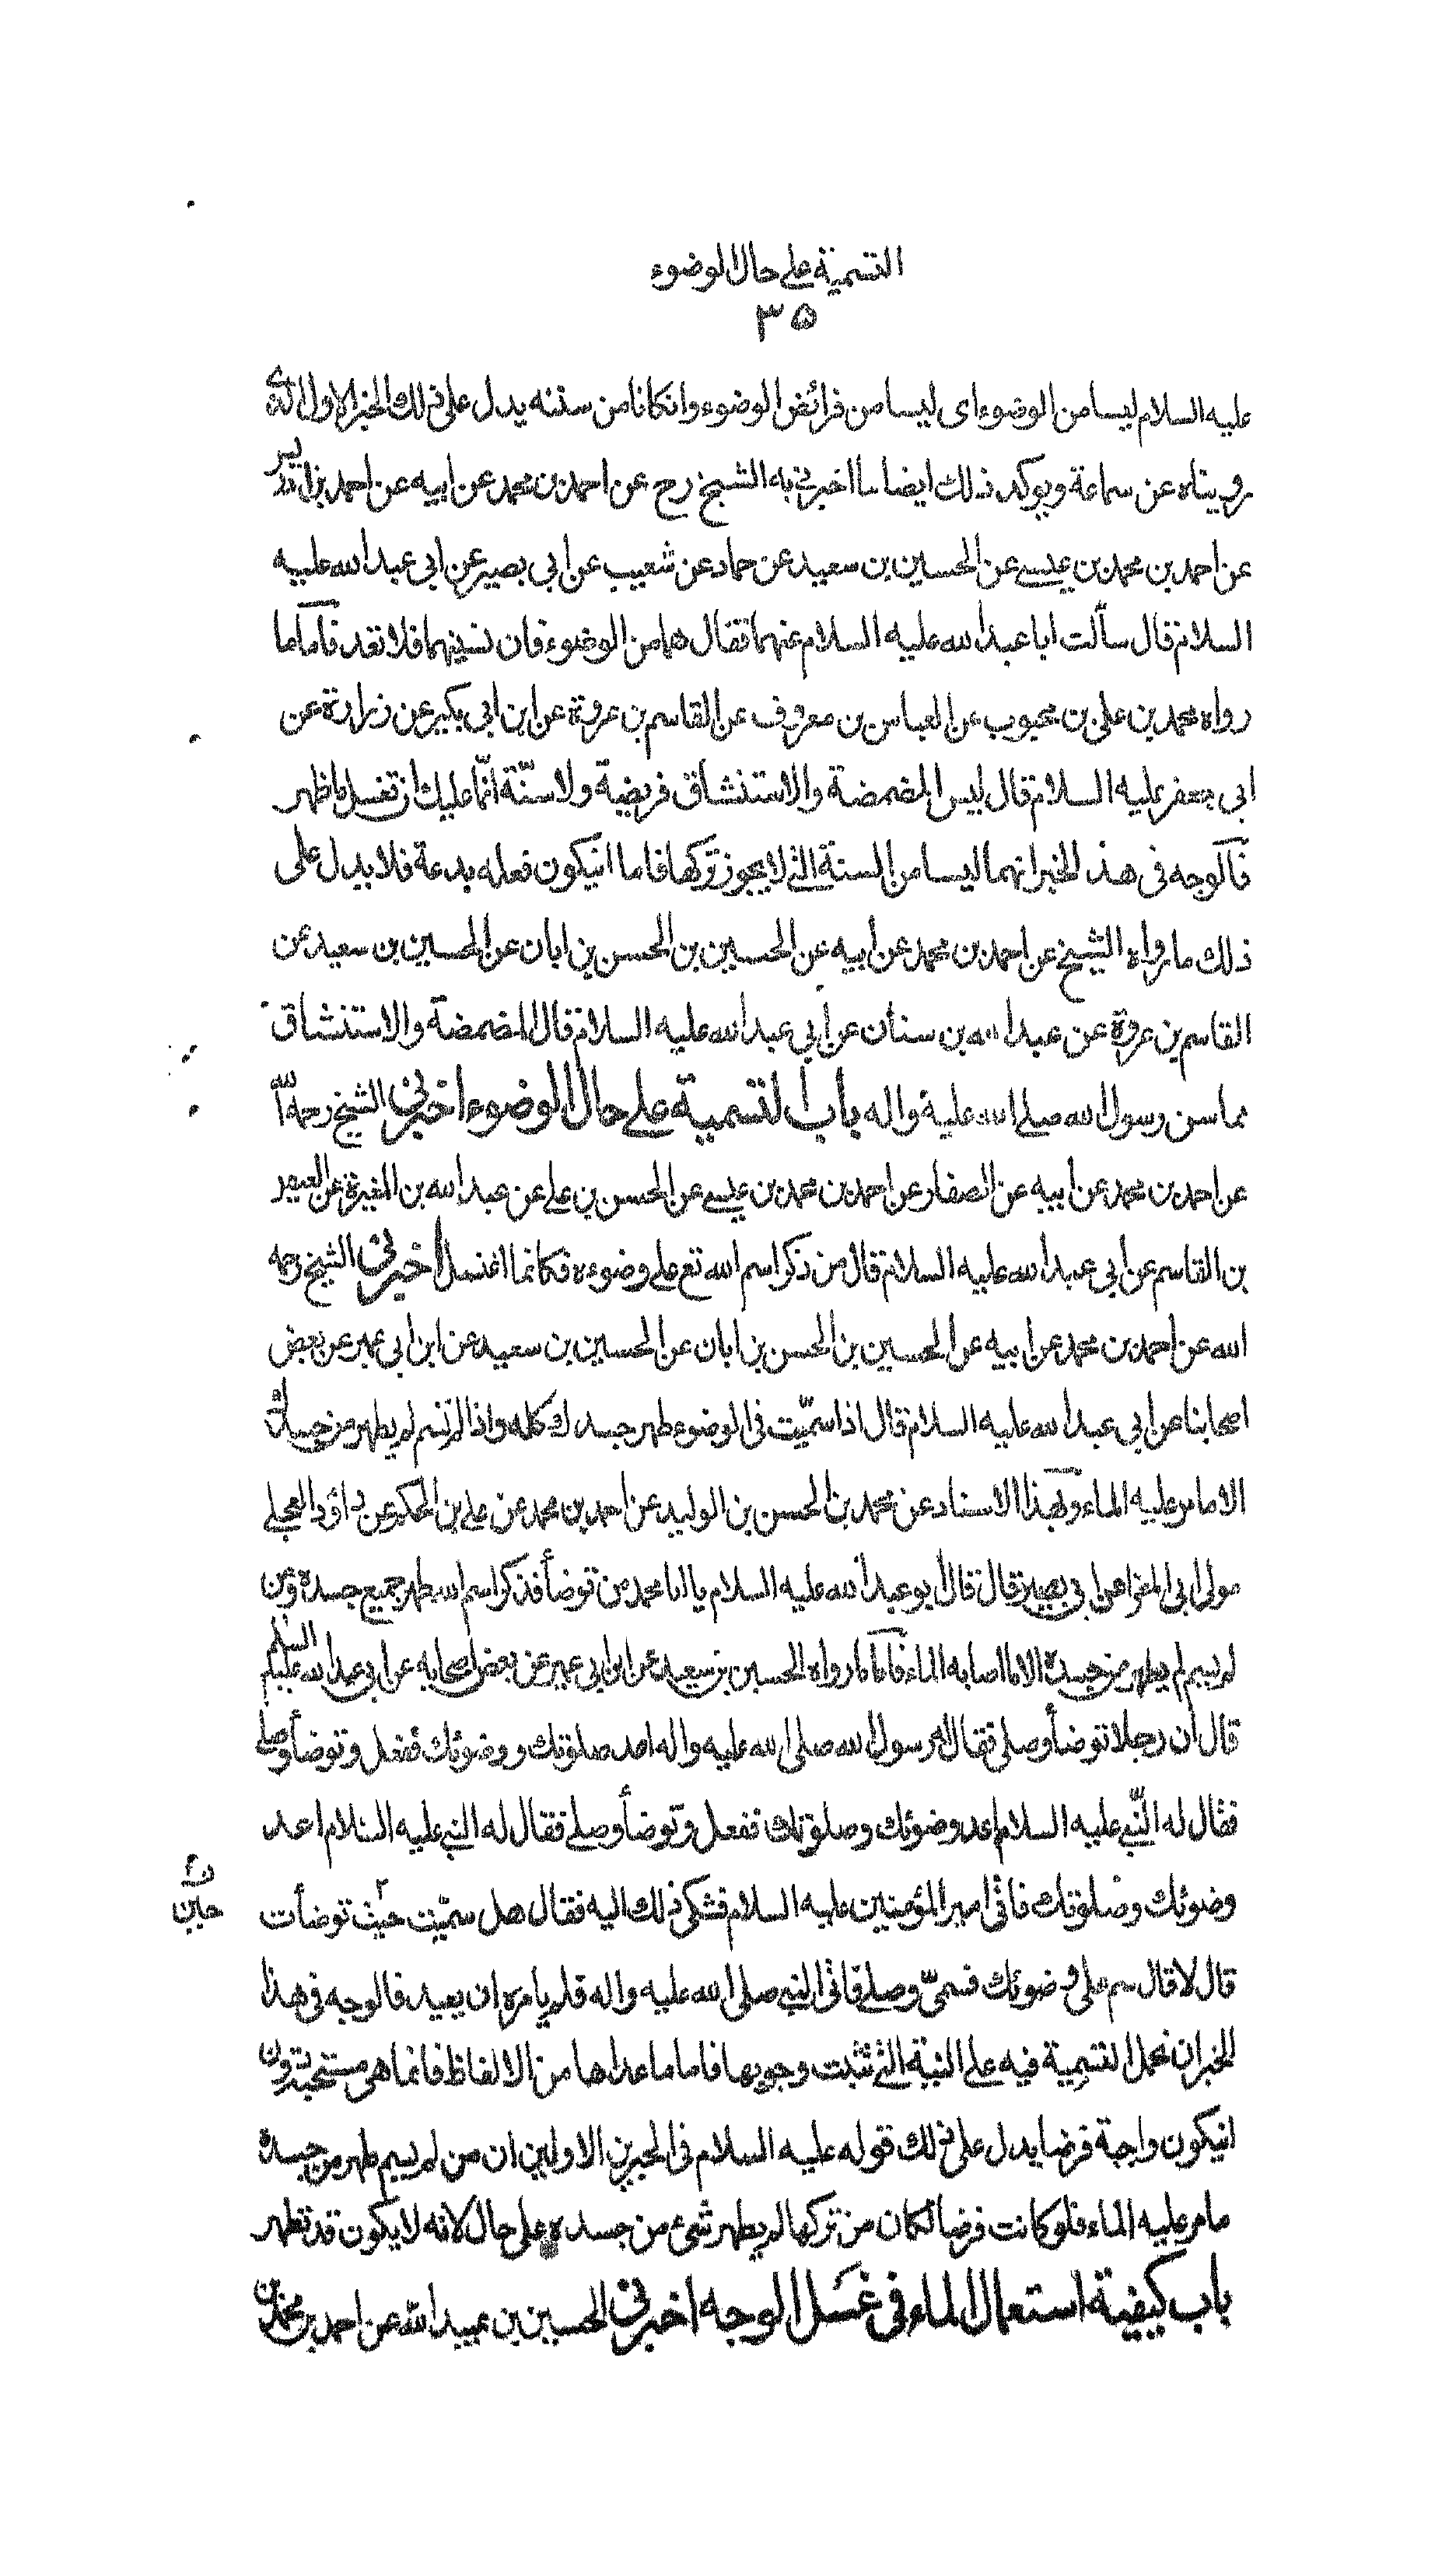 التسمية على حال الوضوء
٣٥
عليه السلام ليسا من الوضوء اى ليسا من فرائض الوضوء وانكانا من سننه يدل على ذلك الخبر الاول الذى
رويناه عن سماعة ويوكد ذلك ايضا ما اخبرنى به الشيخ رح عن احمد بن محمد عن ابيه عن احمد بن ادريس
عن احمد بن محمد بن عيسى عن الحسين بن سعيد عن حماد عن شعيب عن ابى بصير عن ابى عبد الله عليه
السلام قال سألت ابا عبد الله عليه السلام عنهما فقال هما من الوضوء فان نسيتهما فلا تعد فاما ما
رواه محمد بن على بن محبوب عن العباس بن معروف عن القاسم بن عروة عن ابن ابى بكير عن زرارة عن
ابى جعفر عليه السلام قال ليس المضمضة والاستنشاق فريضة ولا سنّة انّما عليك ان تغسل ما ظهر
فالوجه فى هذ الخبر انهما ليسا من السنة التى لا يجوز تركها فاما انيكون فعله بدعة فلا يدل على
ذلك ما رواه الشيخ عن احمد بن محمد عن ابيه عن الحسين بن الحسن بن ابان عن الحسين بن سعيد عن
القاسم بن عروة عن عبد الله بن سنان عن ابى عبد الله عليه السلام قال المضمضة والاستنشاق
مما سن رسول الله صلى الله عليه واله باب التسمية على حال الوضوء اخبرنى الشيخ رحمه الله
عن احمد بن محمد عن ابيه عن الصفار عن احمد بن محمد بن عيسى عن الحسن بن على عن عبد الله بن المغيرة عن العيص
بن القاسم عن ابى عبد الله عليه السلام قال من ذكر اسم الله تع على وضوءه فكانما اغتسل اخبرنى الشيخ رحمه
الله عن احمد بن محمد عن ابيه عن الحسين بن الحسن بن ابان عن الحسين بن سعيد عن ابن ابى عمير عن بعض
اصحابنا عن ابى عبد الله عليه السلام قال اذا سمّيت فى الوضوء طهر جسدك كله واذا لم تسم لم يطهر من جسدك
الا ما مر عليه الماء وبهذا الاسناد عن محمد بن الحسن بن الوليد عن احمد بن محمد عن على بن الحكم عن داود العجلى
مولى ابى المغرا عن ابى بصير قال قال ابو عبد الله عليه السلام يا ابا محمد من توضأ فذكر اسم الله طهر جميع جسده ومن
لم يسم لم يطهر من جسده الا ما اصابه الماء فاما ما رواه الحسين بن سعيد عن ابن ابى عمير عن بعض اصحابه عن ابى عبد الله عليه السلم
قال ان رجلا توضأ وصلى فقال له رسول الله صلى الله عليه واله اعد صلوتك ووضوئك ففعل وتوضأ وصلى
فقال له النّبى عليه السلام اعد وضوئك وصلوتك ففعل وتوضأ وصلى فقال له النبى عليه السلام اعد
وضوئك وصلوتك فاتى امير المؤمنين عليه السلام فشكى ذلك اليه فقال هل سمّيت حيث توضأت
حين
قال لا قال سم على وضوئك فسمىّ وصلى فاتى النبى صلى الله عليه واله فلم يامره ان يعيد فالوجه فى هذا
الخبر ان نحمل التسمية فيه على النية التى تثبت وجوبها فاما ما عداها من الالفاظ فانما هى مستحبة دون
انيكون واجبة فرضا يدل على ذلك قوله عليه السلام فى الخبرين الاولين ان من لم يسم طهر من جسده
ما مر عليه الماء فلو كانت فرضا لكان من تركها لم يطهر شىء من جسده على حال لانه لا يكون قد تطهر
باب كيفية استعمال الماء فى غسل الوجه اخبرنى الحسين بن عبيد الله عن احمد بن محمد بن